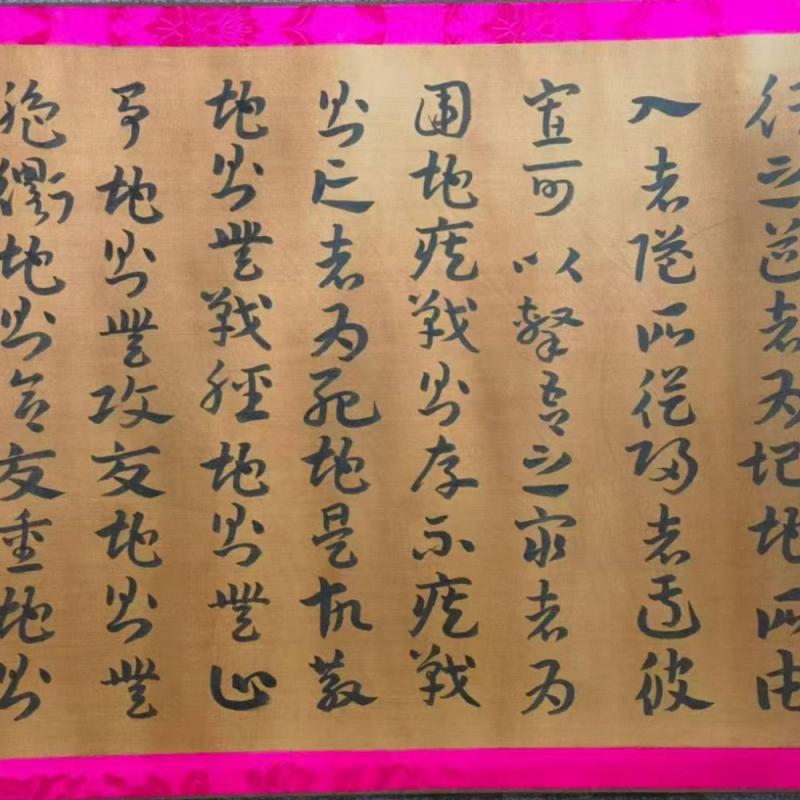 行之道者为圮地所由
入者隘所從歸者迂彼
寡可以擊吾之眾者为
圍地疾戰則存不疾戰
則亡者为死地是故散
地則無戰輕地則無止
爭地則無攻交地則無
絕衢地則合交重地則